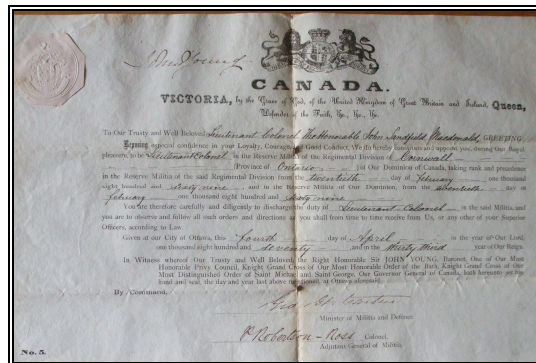 John Young
CANADA.
VICTORIA, by the Grace of God, of the United Kingdom of Great Britain and Ireland, Queen,
Defender of the Faith, &c., &c., &c.
To Our Trusty and Well Beloved Lieutenant Colonel The Honorable John Sandfield Macdonald GREETING:
Reposing especial confidence in your Loyalty, Courage, and Good Conduct, We do hereby constitute and appoint you, during Our Royal
pleasure, to be Lieutenant Colonel in the Reserve Militia of the Regimental Division of Cornwall
Province of Ontario in Our Dominion of Canada, taking rank and precedence
in the Reserve Militia of the said Regimental Division from the twentieth day of February one thousand
eight hundred and sixty nine, and in the Reserve Militia of Our Dominion, from the twentieth day of
February one thousand eight hundred and sixty nine
You are therefore carefully and diligently to discharge the duty of Lieutenant Colonel in the said Militia, and
you are to observe and follow all such orders and directions as you shall from time to time receive from Us, or any other of your Superior
Officers, according to Law.
Given at our City of Ottawa, this fourth day of April in the year of Our Lord,
one thousand eight hundred and seventy and in the thirty third year of Our Reign.
In Witness whereof Our Trusty and Well Beloved, the Right Honorable Sir JOHN YOUNG, Baronet, One of Our Most
Honorable Privy Council, Knight Grand Cross of Our Most Honorable Order of the Bath, Knight Grand Cross of Our
Most Distinguished Order of Saint Michael and Saint George, Our Governor General of Canada, hath hereunto set his
hand and seal, the day and year last above mentioned, at Ottawa aforesaid.
By Command,
Geo. E. Cartier
Minister of Militia and Defence.
P. Robertson-Ross Colonel.
Adjutant General of Militia.
No. 5.